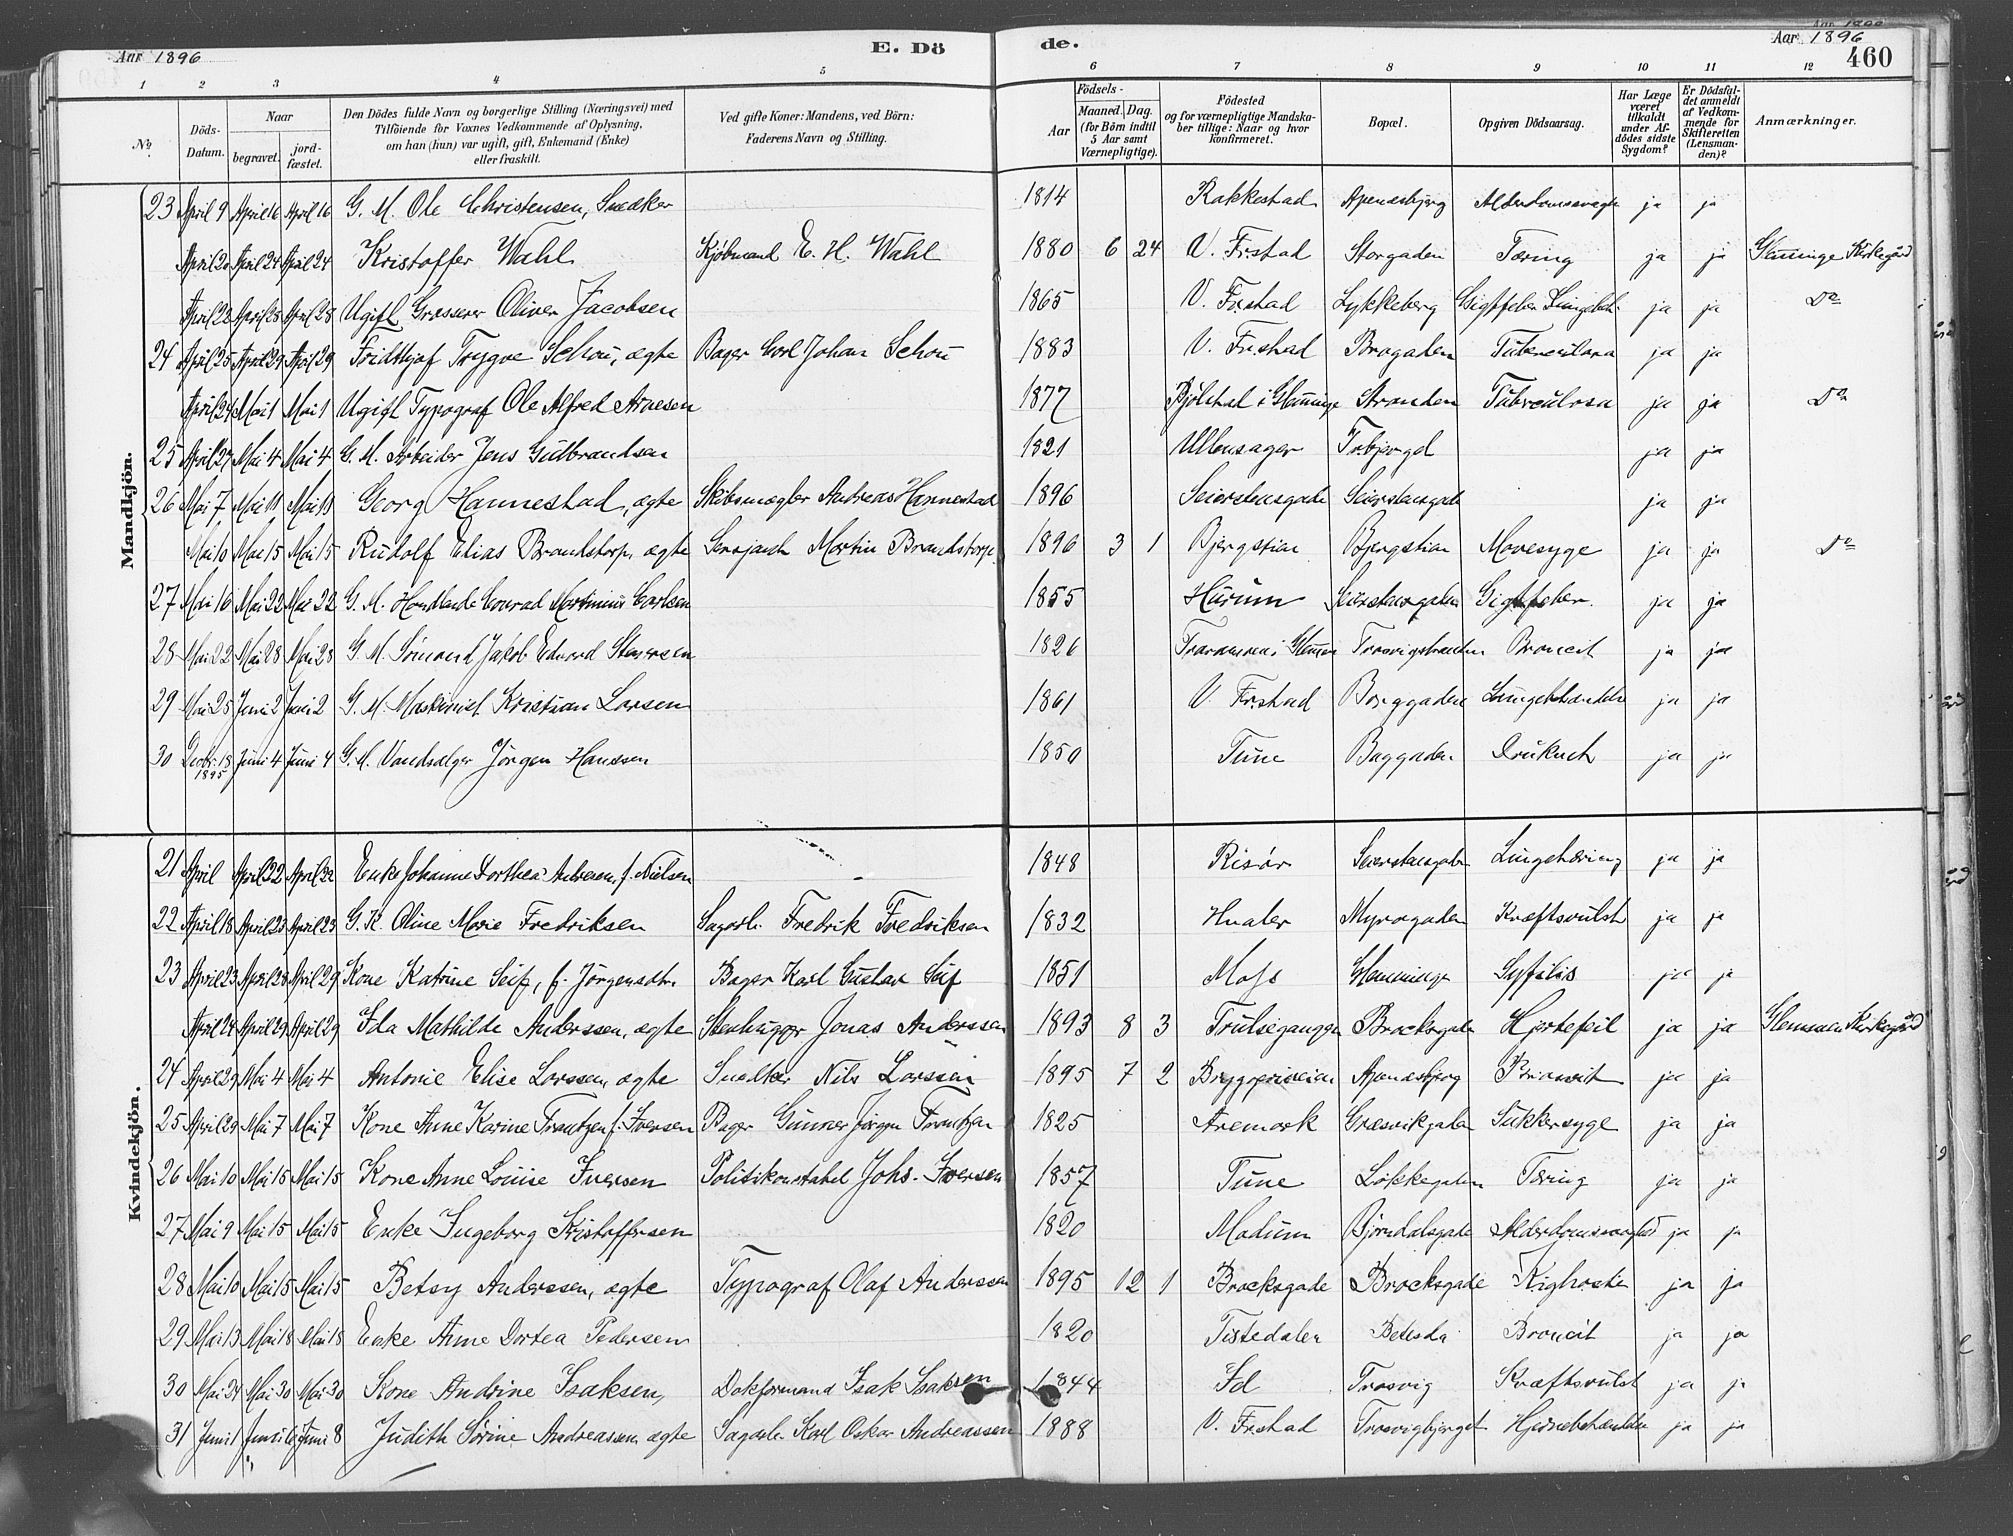 Aar 1896
E. Dö
de.
Aar 1896
460
1 2 3 4 5 6 7 8 9 10 11 12
No.
Döds-Datum.
Naar
begravet.
jordfæstet.
Den Dödes fulde Navn og borgerlige Stilling (Næringsvei) med
Tilföiende for Voxnes Vedkommende af Oplysning,
om han (hun) var ugift, gift, Enkemand (Enke)
eller fraskilt.
Ved gifte Koner: Mandens, ved Börn:
Faderens Navn og Stilling.
Födsels-
Aar
Maaned. Dag.
(for Börn indtil
5 Aar samt
Værnepligtige).
Födested
og for værnepligtige Mandska-
ber tillige: Naar og hvor
konfirmeret.
Bopæl.
Opgiven Dödsaarsag.
Har Læge
været
tilkaldt
under Af-
dödes sidste
Sygdom?
Er Dödsfal-
det anmeldt
af Vedkom-
mende for
Skifteretten
(Lensman-
den)?
Anmærkninger.
Mandkjön.
23 April 9 April 16 April 16 G. M. Ole Christensen, Snedker 1814 Rakkestad Apenæsbjerg Alderdomssvagh ja ja
April 20 April 24 April 24 Kristoffer Wahl Kjöbmand E. H. Wahl 1880 6 24 V. Frstad Storgaden Tæring ja ja Glemminge Kirkegård
April 23 April 28 April 28 Ugift Grosserer Oliver Jacobsen 1865 V. Frstad Lykkeberg Gigtfeber Lungebet. ja ja Do
24 April 25 April 29 April 29 Fridthjof Trygve Schou, ægte Bager Carl Johan Schou 1883 V. Frstad Brogaden Tuberculosa ja ja
April 24 Mai 1 Mai 1 Ugift Typograf Ole Alfred Arnesen 1877 Bjölstad i Glemminge Stranden Tuberculosa ja ja Do
25 April 27 Mai 4 Mai 4 G. M. Arbeider Jens Gulbrandsen 1821 Ullensager ja ja
26 Mai 7 Mai 11 Mai 11 Georg Hannestad, ægte Skibsmægler Andreas Hannestad 1896 Seierstensgade Seierstensgade ja ja
Mai 10 Mai 15 Mai 15 Rudolf Elias Brandstorp, ægte Sersjant Martin Brandstorp 1896 3 1 Bjergstien Bjergstien Mavesyge ja ja Do
27 Mai 16 Mai 22 Mai 22 G. M. Handlende Conrad Martinius Carlsen 1855 Hurum Seierstensgaden Gigtfeber. ja ja
28 Mai 22 Mai 28 Mai 28 G. M. Sömand Jakob Edvard 1826 Trosvigstranden Broncit ja ja
29 Mai 25 Juni 2 Juni 2 G. M. Maskinist Kristian Larsen 1861 V. Frstad Borggaden Lungebetændelse ja ja
30 Decbr. 18 1895 Juni 4 Juni 4 G. M. Vandsælger Jörgen Hanssen 1850 Tune Baggaden Druknet ja ja
Kvindekjön.
21 April April 22 April 22 Enke Johanne Dorthea Andresen, f. Nielsen 1848 Risör Seierstensgaden Lungetæring ja ja
22 April 18 April 23 April 23 G. K. Oline Marie Fredriksen Sagarb. Fredrik Fredriksen 1832 Hvaler Myragaden Kræftsvulst ja ja
23 April 23 April 28 April 29 Kone Katrine Seif, f. Jörgensdtr. Bager Karl Gustav Seif 1851 Moss Glemminge Syfilis ja ja
April 24 April 29 April 29 Ida Mathilde Anderssen, ægte Stenhugger Jonas Anderssen 1893 8 3 Trulseganggen Brocksgaden Hjertefeil ja ja Glemmen Kirkegård
24 April 29 Mai 4 Mai 4 Antonie Elise Larssen, ægte Snedker Nils Larssen 1895 7 2 Bryggeriveien Apenæsbjerg Broncit ja ja
25 April 29 Mai 7 Mai 7 Kone Anne Karine Frantzen f. Iversen Bager Gunner Jörgen Frantzen 1825 Aremark Græsvikgaden Sukkersyge ja ja
26 Mai 10 Mai 15 Mai 15 Kone Anne Louise Iversen Politikonstabel Johs. Iversen 1857 Tune Lökkegaden Tæring ja ja
27 Mai 9 Mai 15 Mai 15 Enke Ingeborg Kristoffersen 1820 Modum Björndalsgade Alderdomssvaghed ja ja
28 Mai 10 Mai 15 Mai 15 Betsy Anderssen, ægte Typograf Olaf Anderssen 1895 12 1 Brocksgade Brocksgade Kighoste ja ja
29 Mai 13 Mai 18 Mai 18 Enke Anne Dortea Pedersen 1820 Tistedalen Betesda Broncit ja ja
30 Mai 24 Mai 30 Mai 30 Kone Andrine Isaksen, Dokformand Isak Isaksen 1844 Id Trosvig Kræftsvulst ja ja
31 Juni 1 Juni 6 Juni 8 Judith Sörine Andreassen, ægte Sagarb. Karl Oskar Andreassen 1888 V. Frstad Trosvigbjerget Hjernebetændelse ja ja